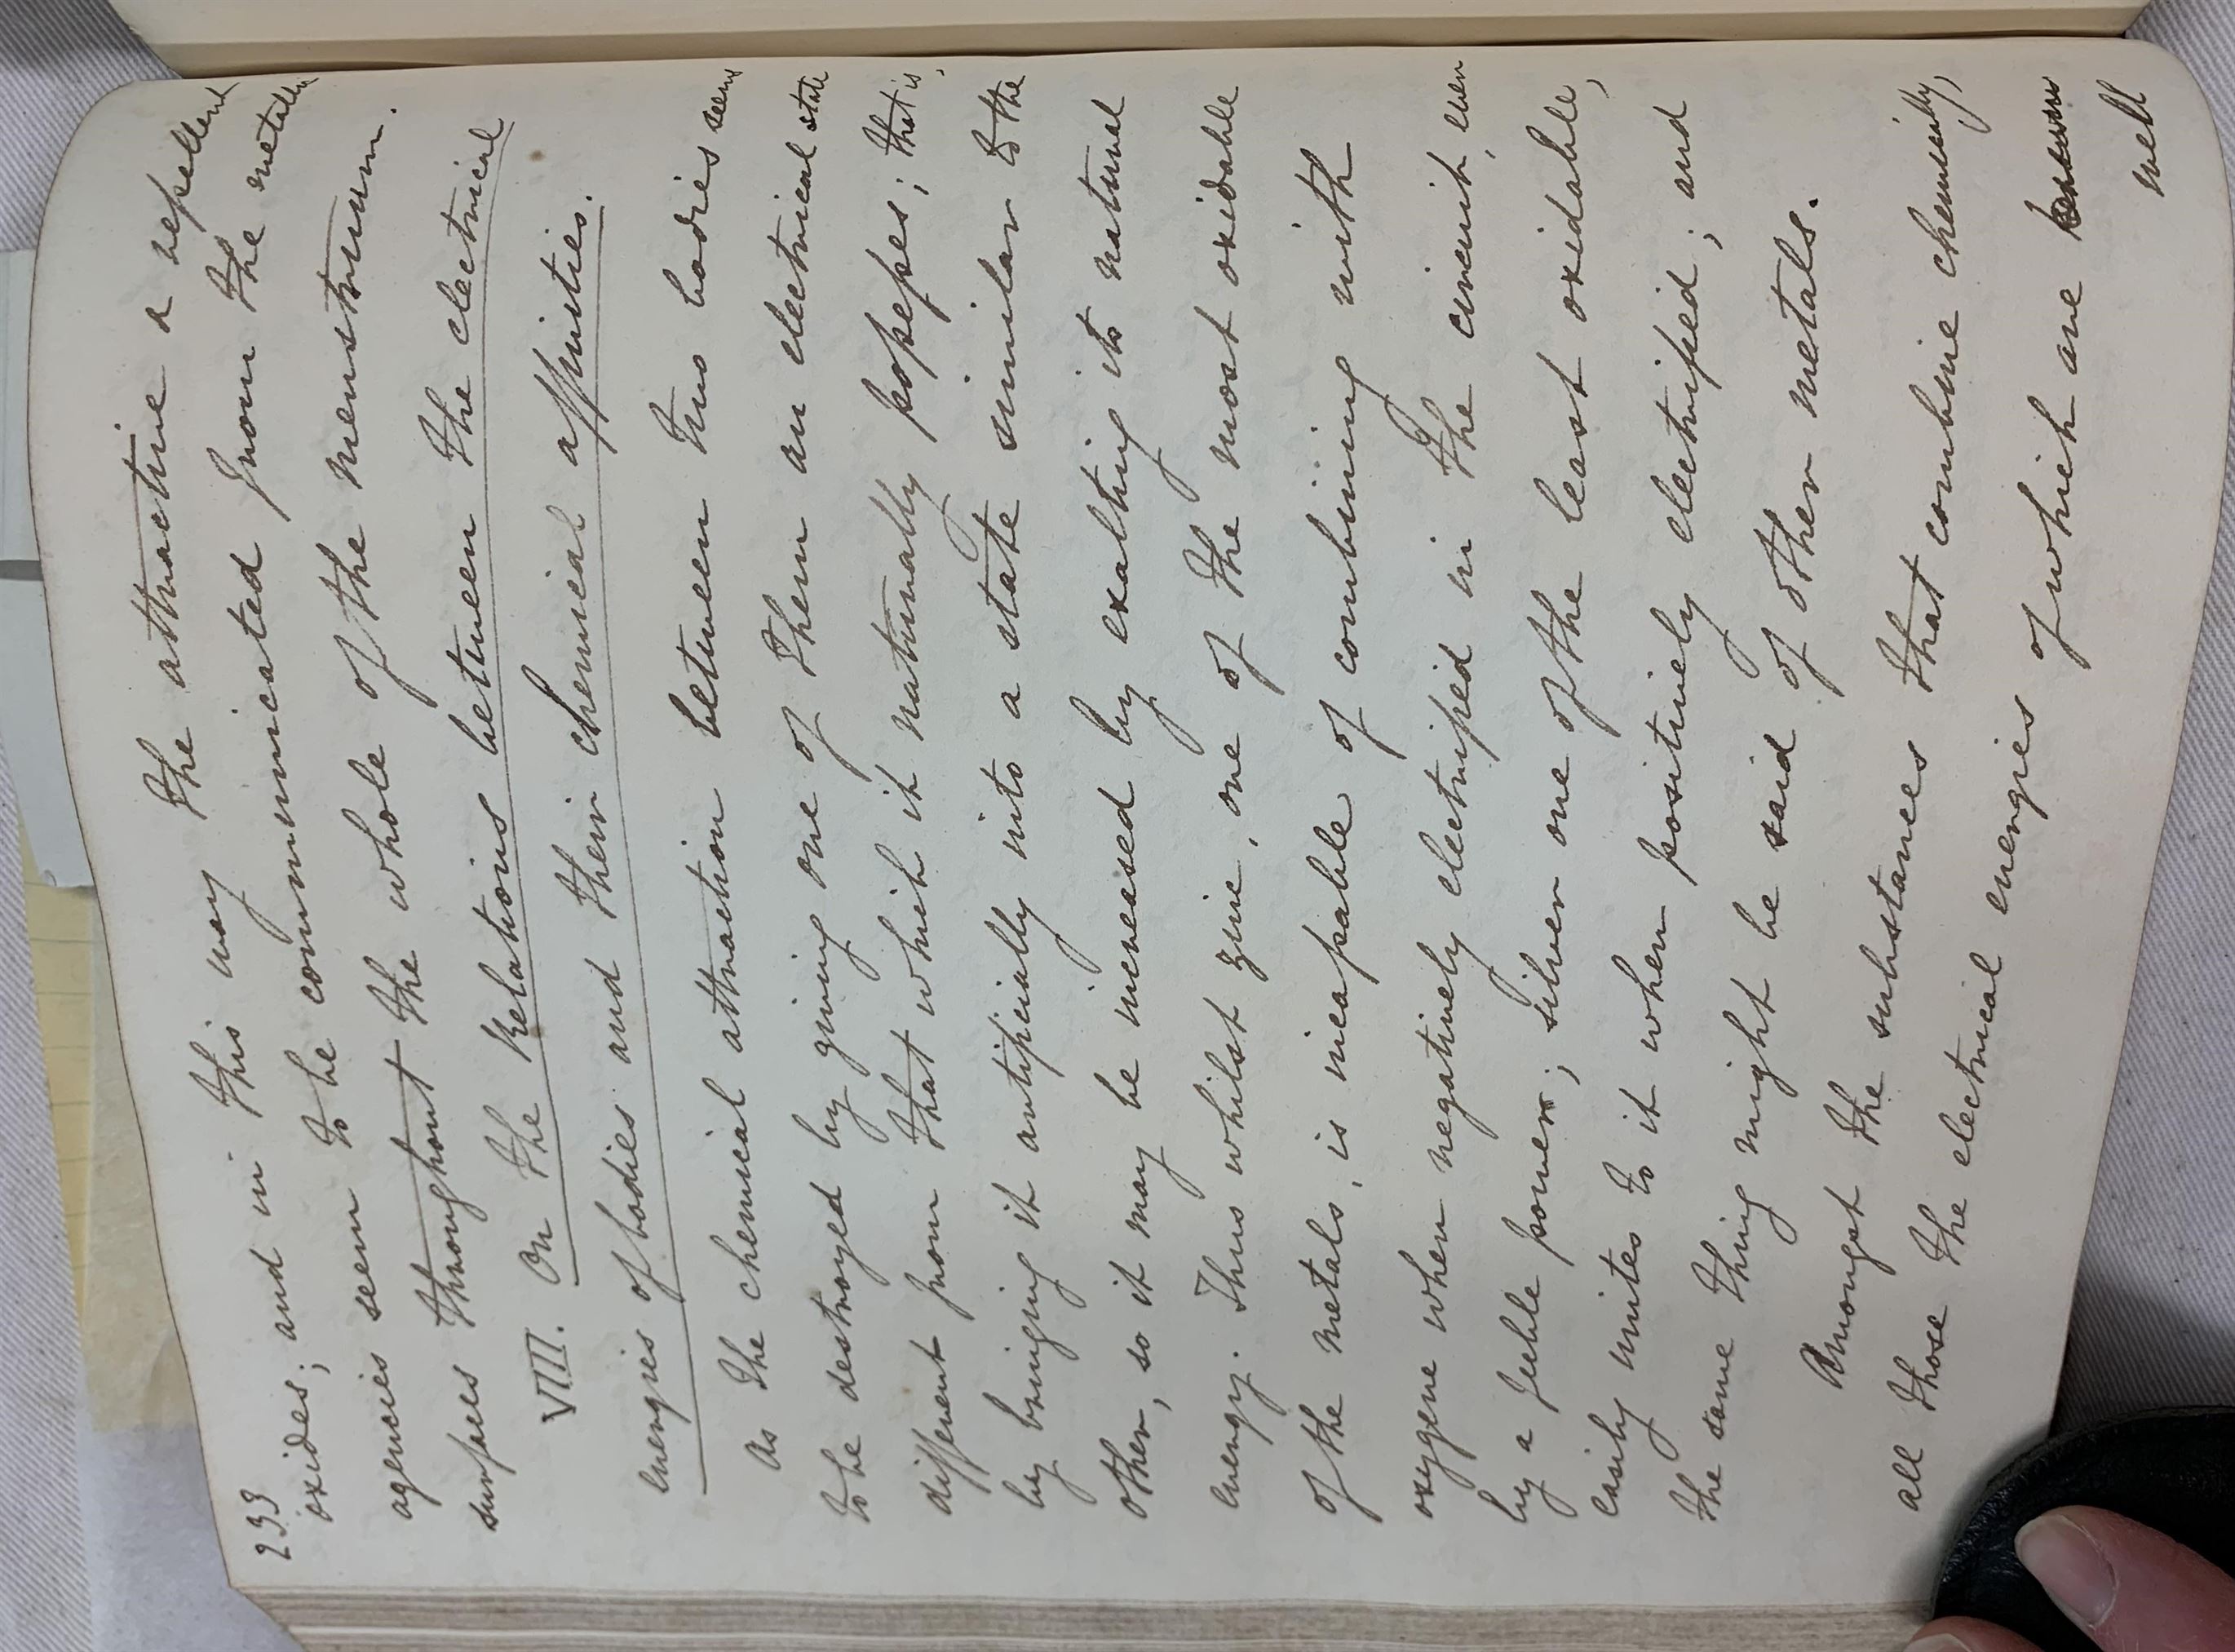 233
oxides; and in this way the attractive & repellent
agencies seem to be communicated from the metallic
surfaces throughout the whole of the menstruum.
VIII. On the Relations between the electrical
energies of bodies and their chemical affinities.
As the chemical attraction between two bodies seems
to be destroyed by giving one of them an electrical state
different from that which it naturally posesses; that is,
by bringing it artificially into a state similar to the
other, so it may be increased by exalting its natural
energy. Thus whilst zinc, one of the most oxidable
of the metals, is incapable of combining with
oxygene when negatively electrified in the circuit, even
by a feeble power; silver one of the least oxidable,
easily unites to it when positively electrified; and
the same thing might be said of other metals.
Amongst the substances that combine chemically,
all those the electrical energies of which are
well